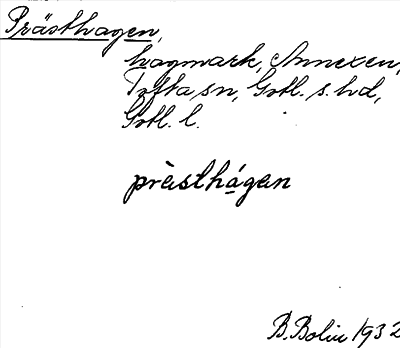 Prästhagen,
hagmark, Annexen,
Tofta sn, Gotl. s. hd,
Gotl. l.
prȧsthágen
B. Bolin 1932